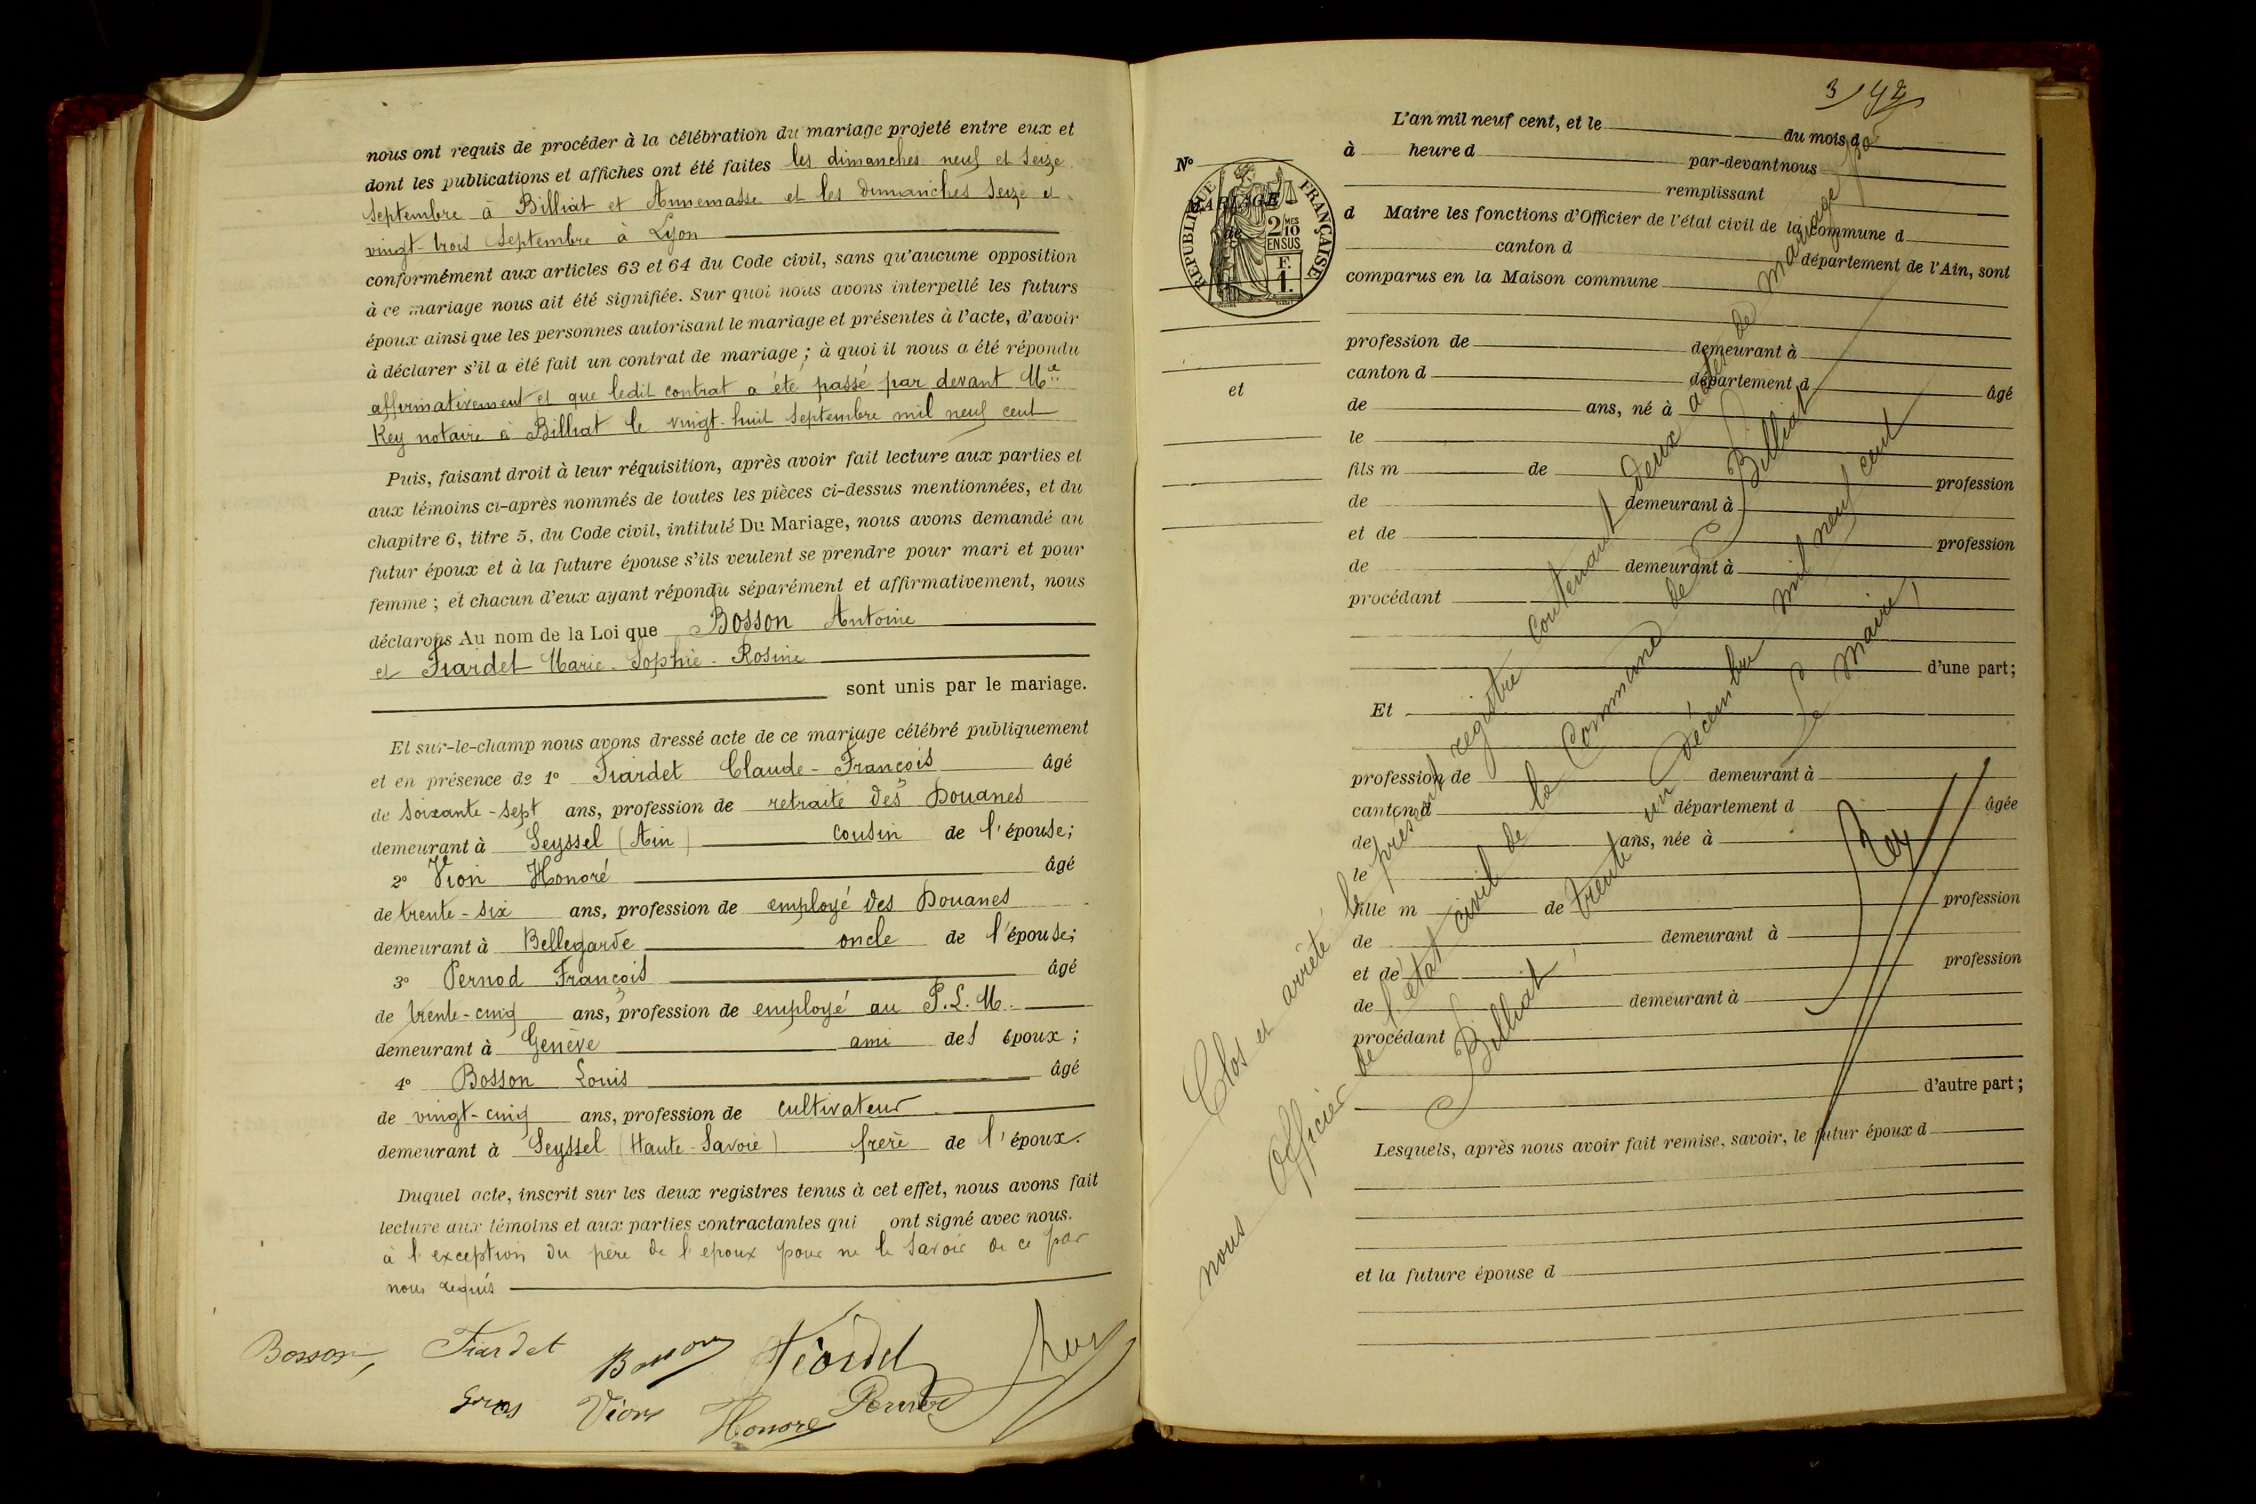 nous ont requis de procéder à la célébration du mariage projeté entre eux et
dont les publications et affiches ont été faites les dimanches neuf et seize
septembre à Billiat et Annemasse et les dimanches seize et
vingt-trois septembre à Lyon
conformément aux articles 63 et 64 du Code civil, sans qu'aucune opposition
à ce mariage nous ait été signifiée. Sur quoi nous avons interpellé les futurs
époux ainsi que les personnes autorisant le mariage et présentes à l'acte, d'avoir
à déclarer s'il a été fait un contrat de mariage ; à quoi il nous a été répondu
affirmativement et que ledit contrat a été passé par devant Me
Rey notaire à Billiat le vingt-huit septembre mil neuf cent
Puis, faisant droit à leur réquisition, après avoir fait lecture aux parties et
aux témoins ci-après nommés de toutes les pièces ci-dessus mentionnées, et du
chapitre 6, titre 5, du Code civil, intitulé Du Mariage, nous avons demandé au
futur époux et à la future épouse s'ils veulent se prendre pour mari et pour
femme ; et chacun d'eux ayant répondu séparément et affirmativement, nous
déclarons Au nom de la Loi que Bosson Antoine
et Fiardet Marie-Sophie-Rosine
sont unis par le mariage.
Et sur-le-champ nous avons dressé acte de ce mariage célébré publiquement
et en présence de 1° Fiardet Claude-François âgé
de soixante-sept ans, profession de retraité des Douanes
demeurant à Seyssel (Ain) cousin de l'épouse;
2° Vion Honoré âgé
de trente-six ans, profession de employé des Douanes
demeurant à Bellegarde oncle de l'épouse;
3° Pernod François âgé
de trente-cinq ans, profession de employé au P.L.M.
demeurant à Genève ami des époux ;
4° Bosson Louis âgé
de vingt-cinq ans, profession de cultivateur
demeurant à Seyssel (Haute-Savoie) frère de l'époux.
Duquel acte, inscrit sur les deux registres tenus à cet effet, nous avons fait
lecture aux témoins et aux parties contractantes qui ont signé avec nous.
à l'exception du père de l'époux pour ne le savoir de ce par
nous requis
Bosson Fiardet Bosson Fiardet Rey
Gros Vion Honoré Pernod
3/42
N°
MARIAGE
de
REPUBLIQUE FRANÇAISE
2/10 MES
EN SUS
F.
1.
et
L'an mil neuf cent, et le du mois d
à heure d par-devant nous
remplissant
d Maire les fonctions d'Officier de l'état civil de la commune d
canton d département de l'Ain, sont
comparus en la Maison commune
profession de demeurant à
canton d département d âgé
de ans, né à
le
fils m de profession
de demeurant à
et de profession
de demeurant à
procédant
d'une part;
Et
profession de demeurant à
canton d département d âgée
de ans, née à
le
fille m de profession
de demeurant à
et de profession
de demeurant à
procédant
d'autre part ;
Lesquels, après nous avoir fait remise, savoir, le futur époux d
et la future épouse d
Clos et arrêté le présent registre contenant deux actes de mariage par
nous Officier de l'état civil de la Commune de Billiat
Billiat, trente un décembre mil neuf cent
Le maire,
Rey